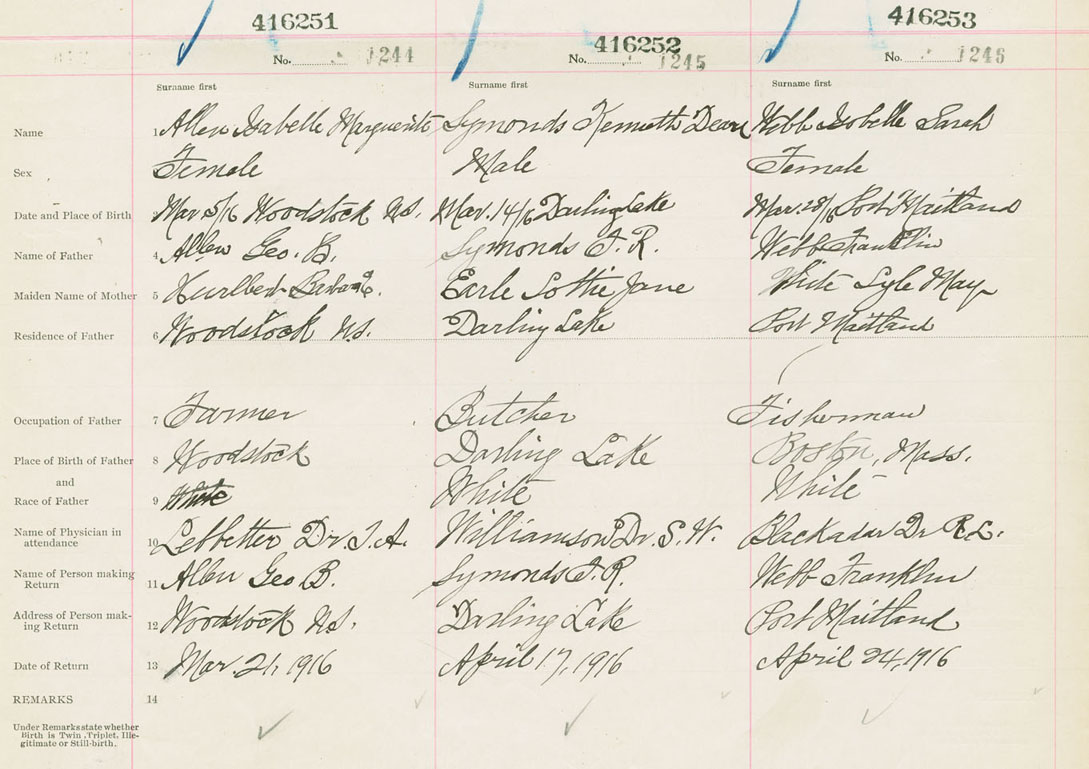 416251 416252 416253
No. 1244 No. 1245 No. 1246
Surname first Surname first Surname first
Name 1 Allen Isabelle Marguerite Symonds Kenneth Dean Webb Isobelle Sarah
Sex Female Male Female
Date and Place of Birth Mar 5/16 Woodstock N.S. Mar. 14/16 Darling Lake Mar. 28/16 Port Maitland
Name of Father 4 Allen Geo. B. Symonds J. R. Webb Franklin
Maiden Name of Mother 5 Hurlbert Earle Lottie Jane White Lyle May
Residence of Father 6 Woodstock N.S. Darling Lake Port Maitland
Occupation of Father 7 Farmer Butcher Fisherman
Place of Birth of Father 8 Woodstock Darling Lake Boston, Mass.
and
Race of Father 9 White White White
Name of Physician in
attendance 10 Lebbetter Dr. J. A. Williamson Dr. S. W. Blackadar Dr R. L.
Name of Person making
Return 11 Allen Geo B. Symonds J. R. Webb Franklin
Address of Person mak-
ing Return 12 Woodstock N.S. Darling Lake Port Maitland
Date of Return 13 Mar. 21, 1916 April 17, 1916 April 24, 1916
REMARKS 14
Under Remarks state whether
Birth is Twin, Triplet, Ille-
gitimate or Still-birth.